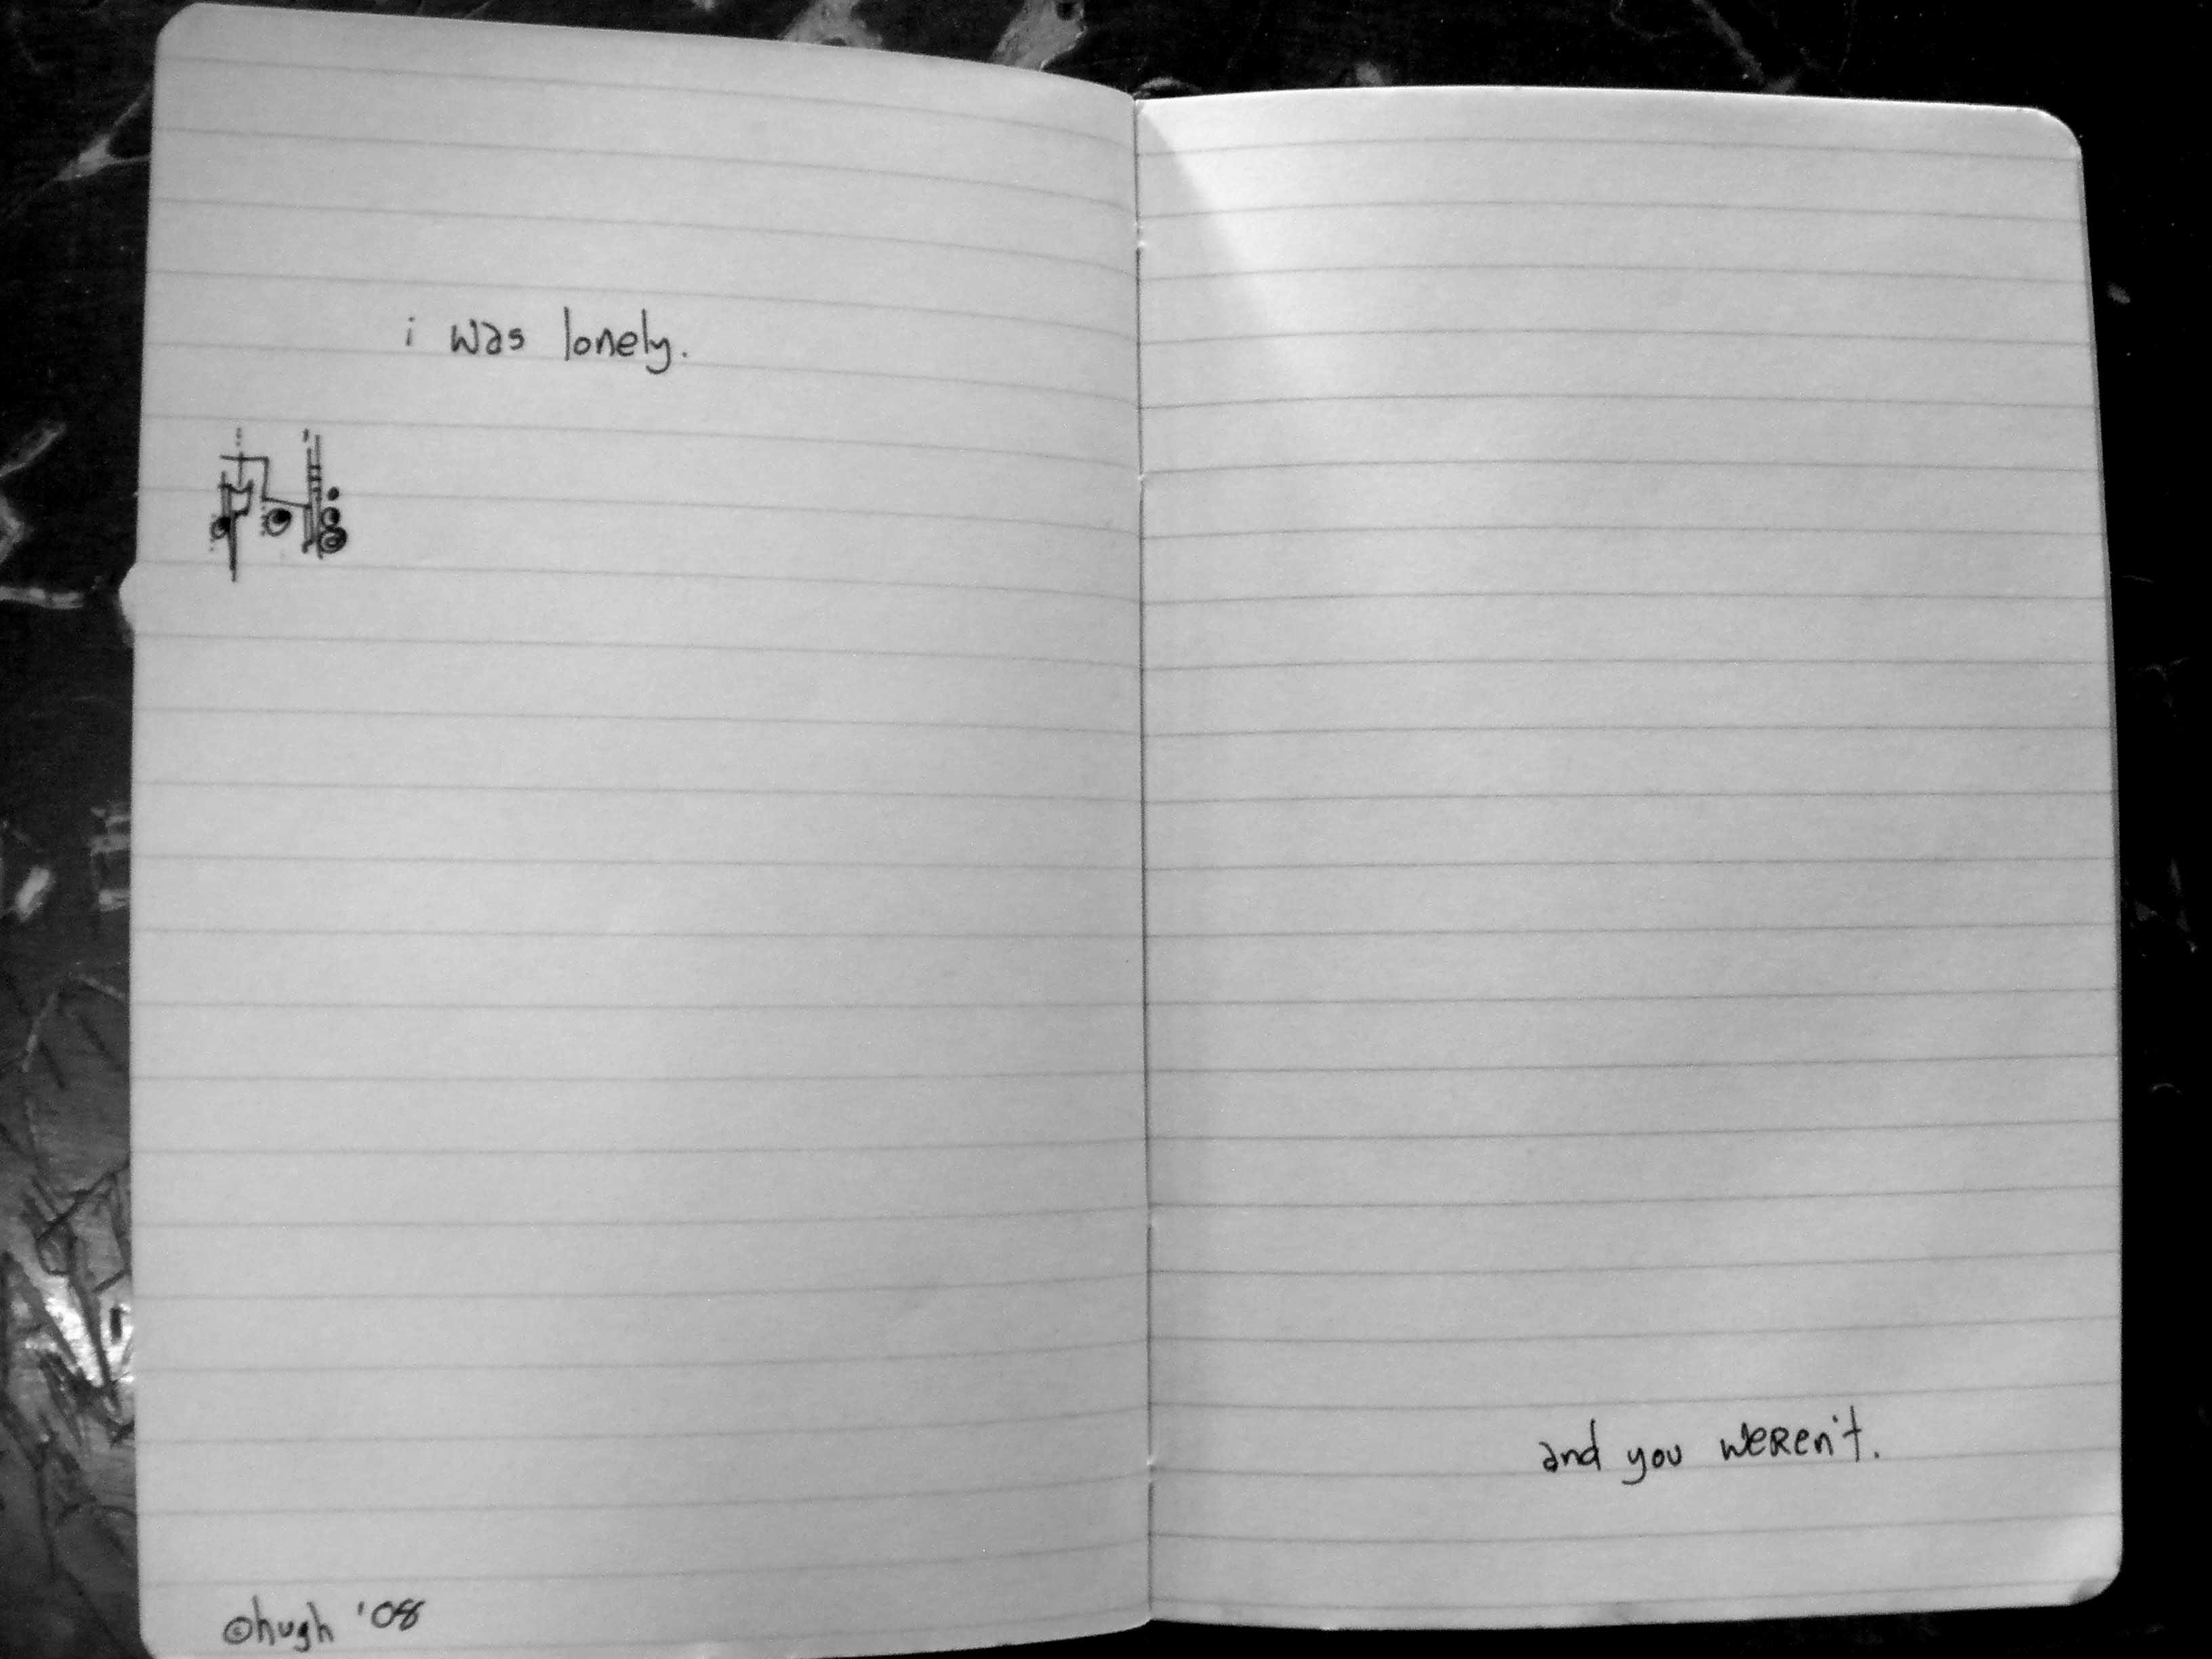 i was lonely.
©hugh '08
and you weren't.